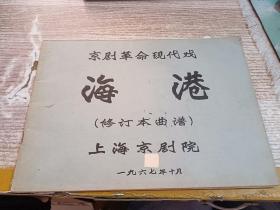 京剧革命现代戏
海港
(修订本曲谱)
上海京剧院
一九六七年十月